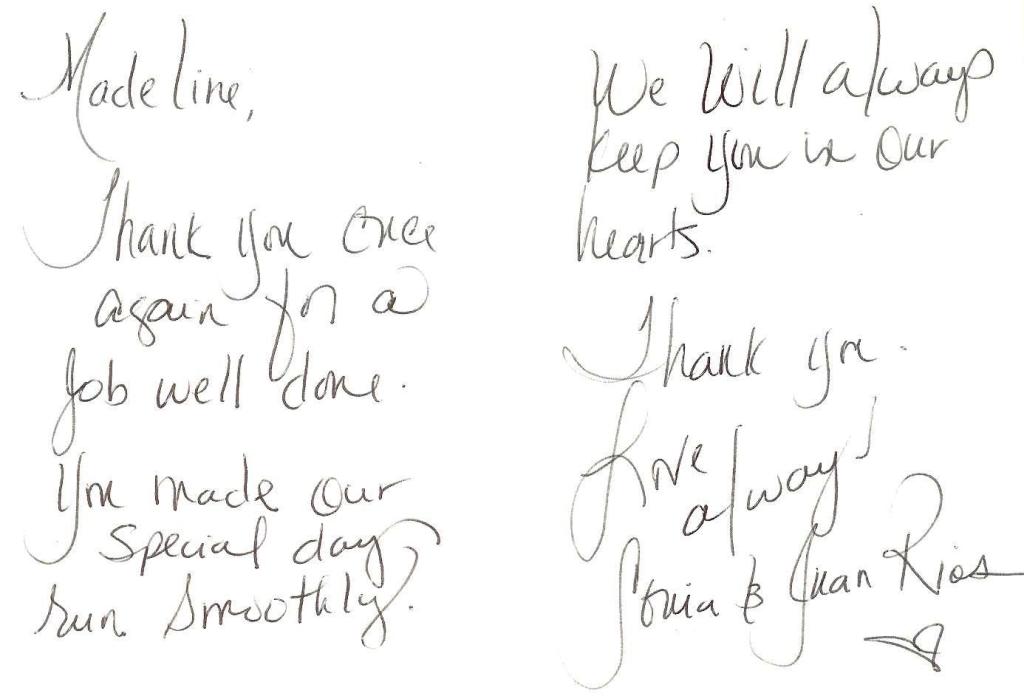 Madeline,
Thank you once
again for a
job well done.
You made our
special day
run smoothly.
We will always
keep you in our
hearts.
Thank you.
Love
always
Sonia & Juan Rios